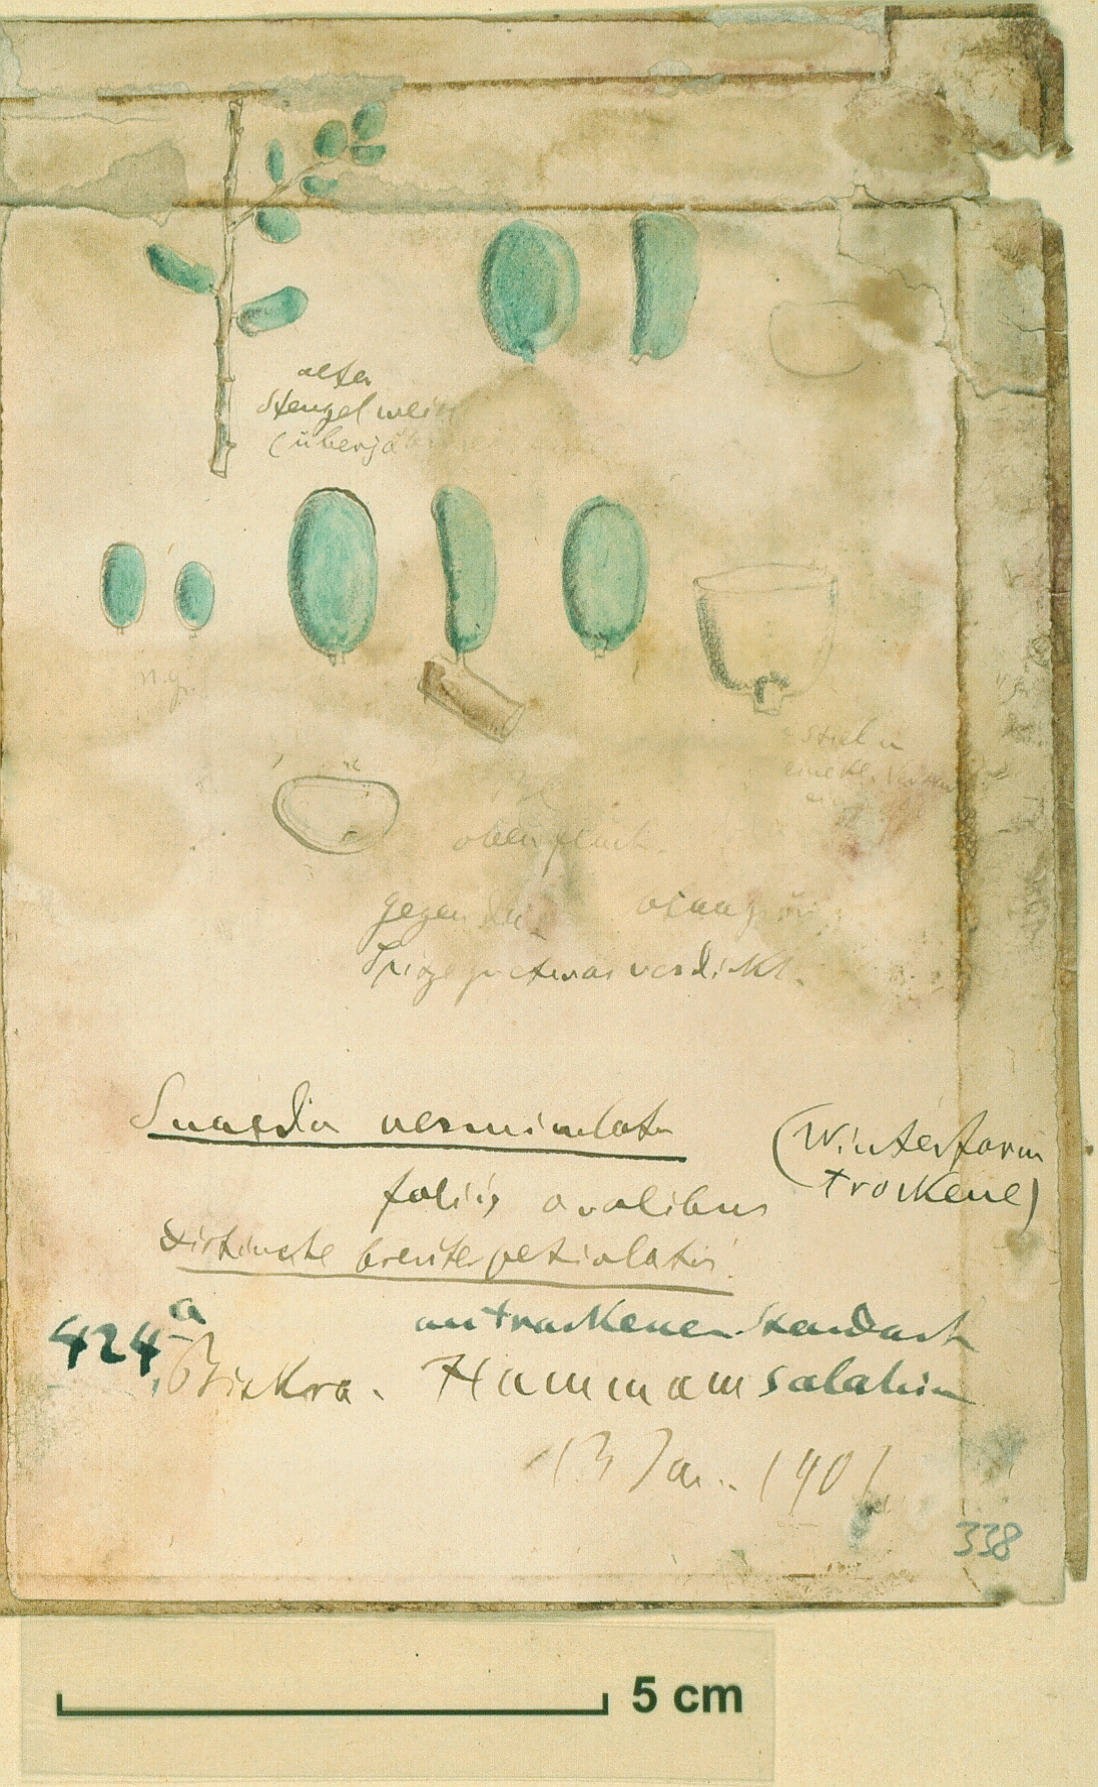 alter
Stengel weiss
(überjä
n. gr.
Stiel in
eine kl.
oben flach.
gegen die
Spitze zu etwas verdickt.
Suaeda vermiculata
(Winterform
trockene)
foliis ovalibus
distincte breviter petiolatis.
an trockenem Standort
424a
Biskra. Hammam salahin
13 Jan. 1901
338
5 cm